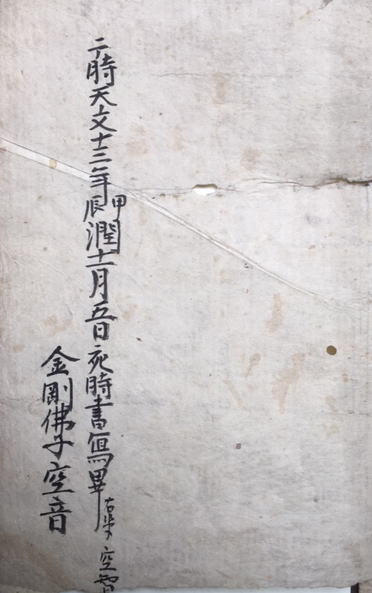 于時天文十三年甲辰潤十一月五日亥時書寫畢右筆空
金剛佛子空音